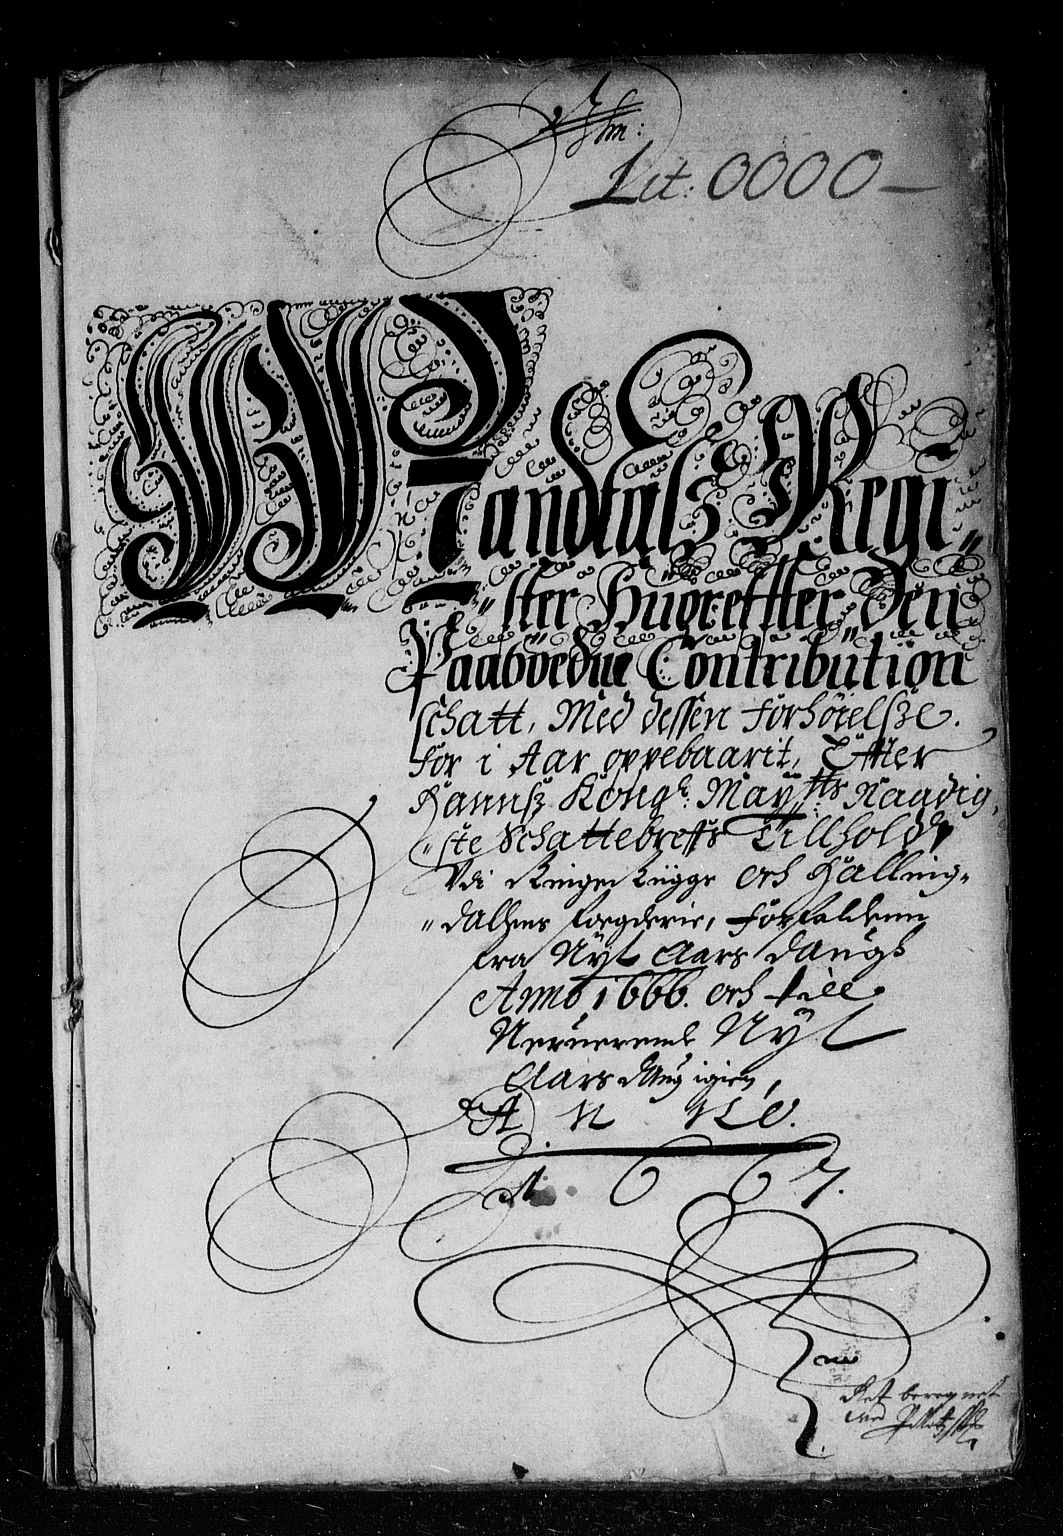 Lit: OOOO
Mandtalß Regi-
ster Huorefter den
Paabödne Contribution
schatt, Med dessen forhöielsze.
for i Aar oppebaarit, Effter
Hannsz Kongl: Maytts: Naadig-
ste Schattebreffs Tillhold
Vdi Ringerügge och Halling-
dalsens foegderie, forfalden
fra Nyt Aars daugh
Anno 1666. och till
Neruerend Nyt
Aars daug igien,
A N N O.
1 6 6 7.
Ret beregnet